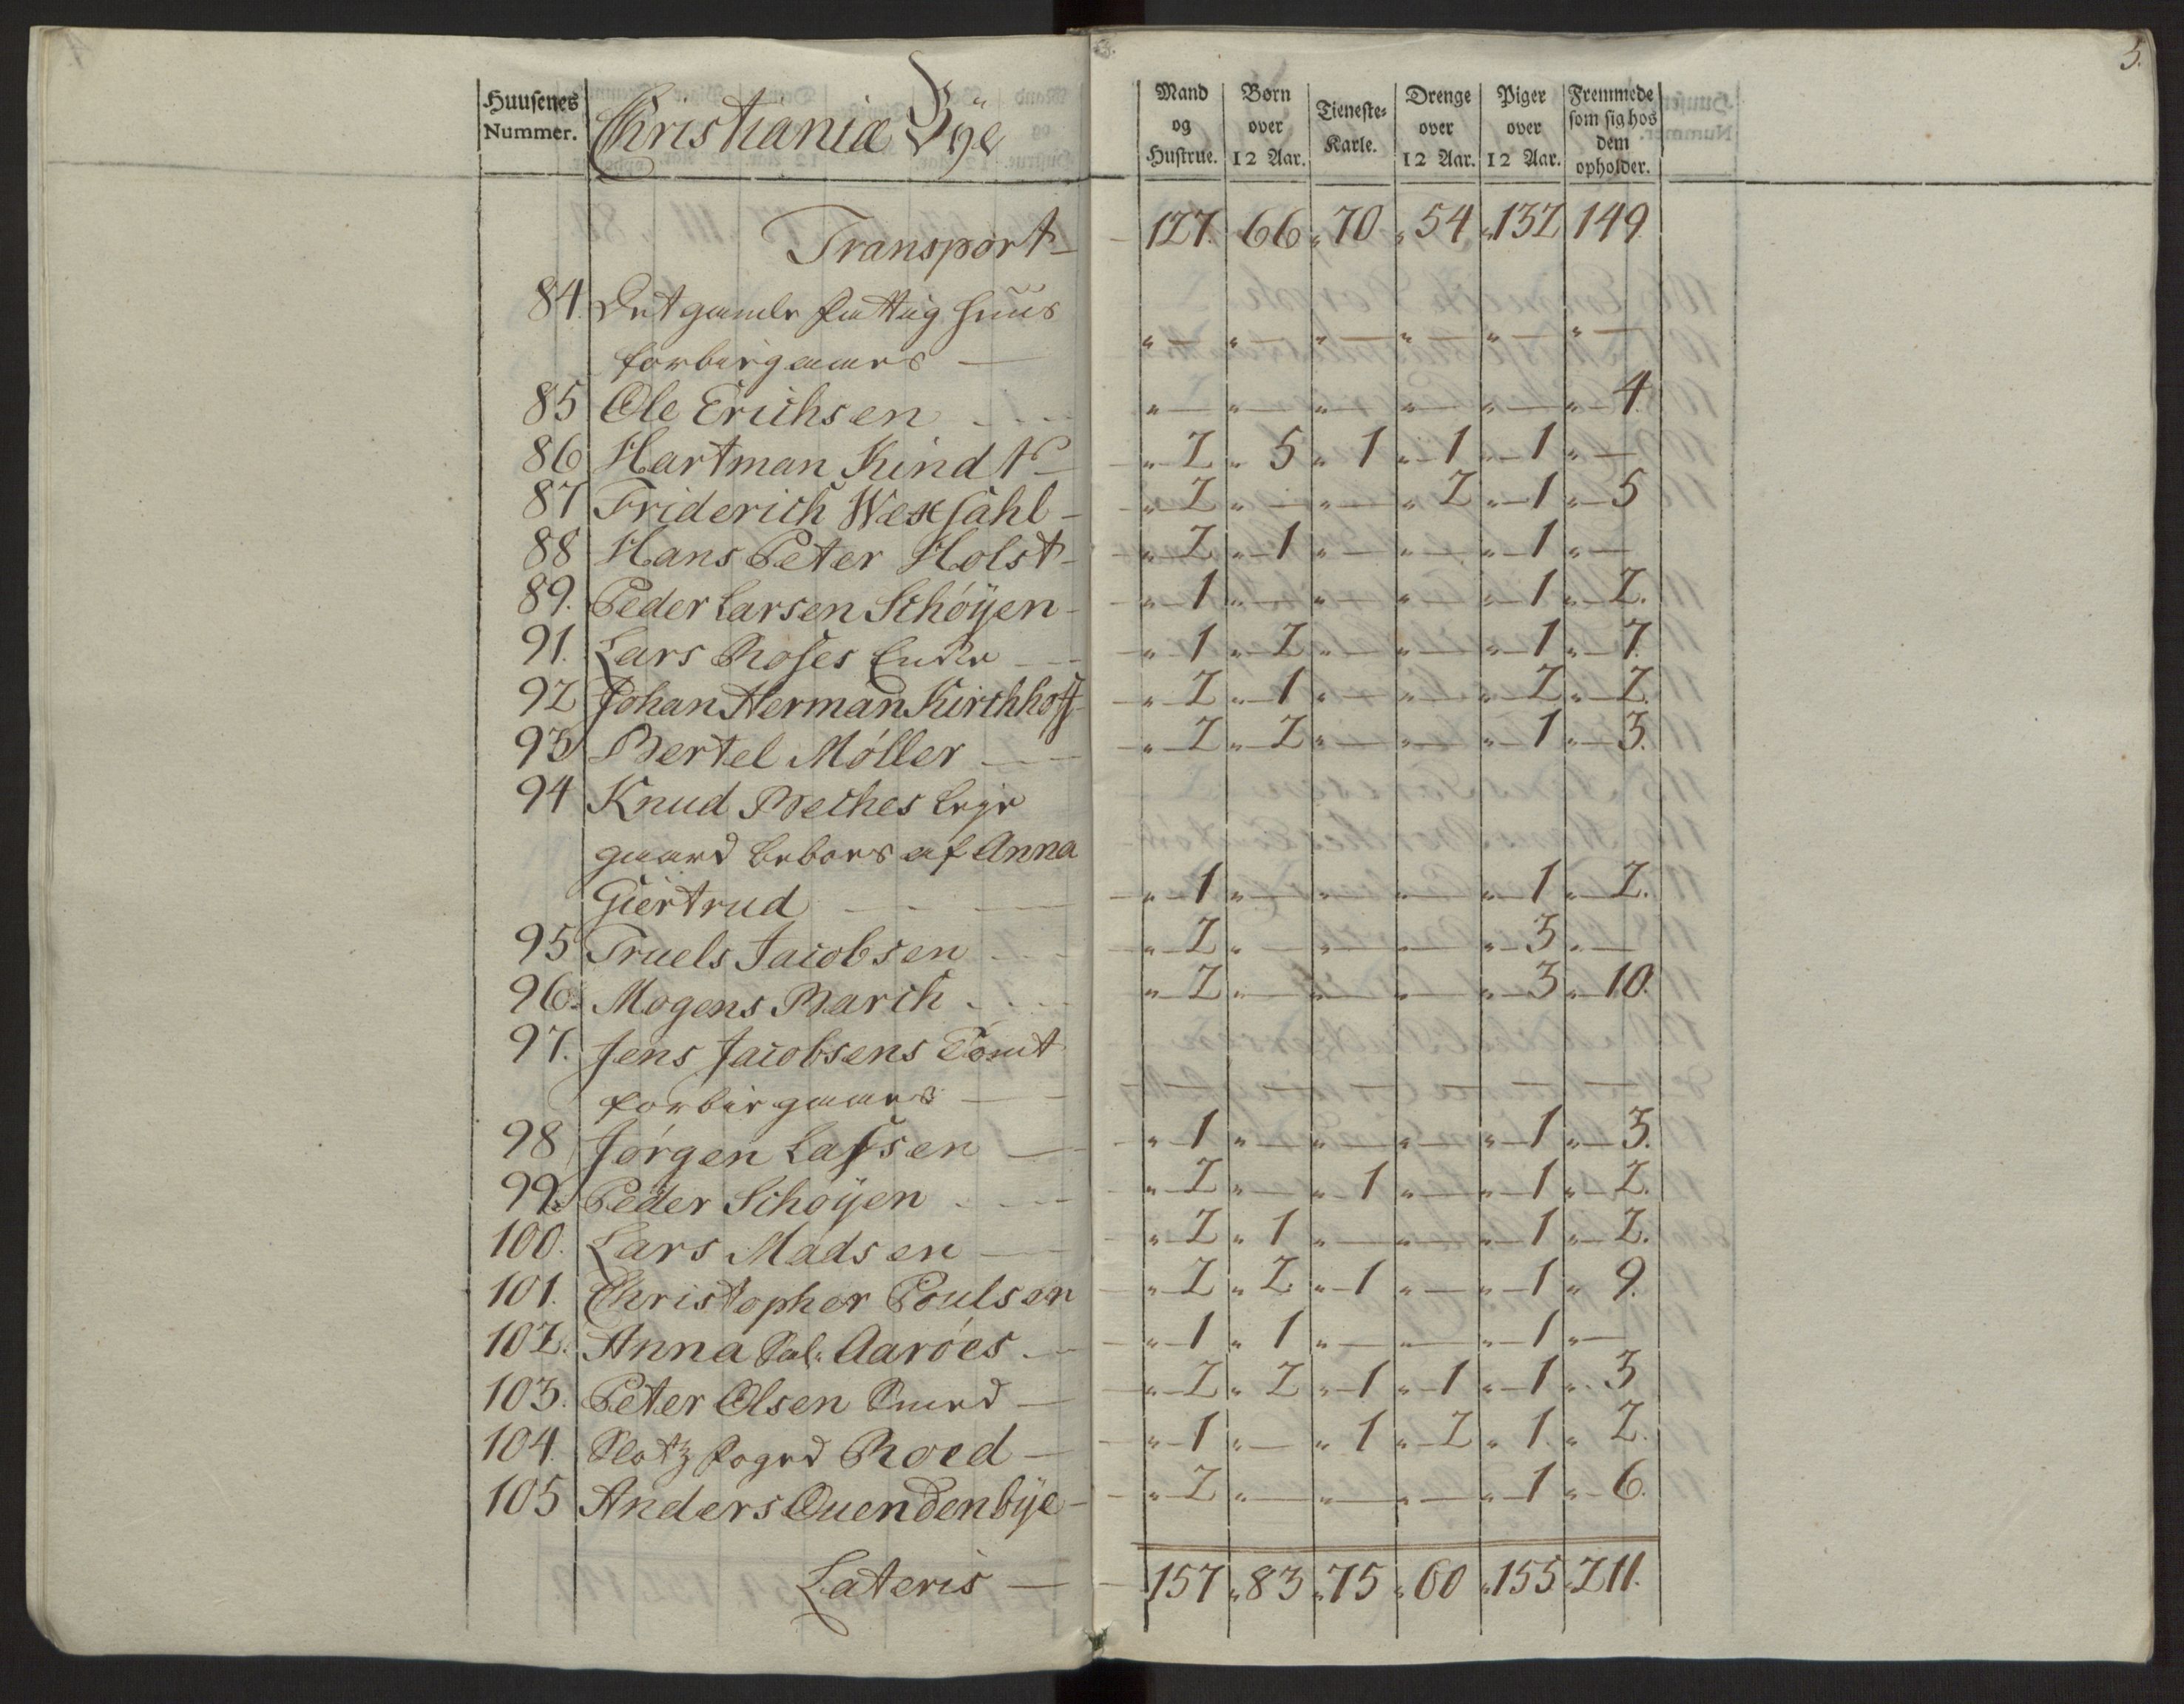 3.
5.
Huusenes Nummer. Christiania Bÿe Mand og Hustrue. Børn over 12 Aar. Tieneste-Karle. Drenge over 12 Aar. Piger over 12 Aar. Fremmede som sig hos dem opholder.
Transport — 127. 66 „ 70 „ 54 „ 132 149.
84. Det gamle fattig Huus
forbiegaaes — „— „— „— „— „— „—
85 Ole Erichsen „— „— „— „— „— „— 4.
86 Hartman Kindt — „ 2 „ 5 „ 1 „ 1 „ 1 „—
87 Friderich Wexsahl — „ 2 „— „— „ 2 „ 1 „ 5
88 Hans Peter Holst — „ 2 „ 1 „— „— „ 1 „—
89. Peder Larsen Schöÿen — „ 1 „— „— „— „ 1 „ 2.
91. Lars Roses Encke — „ 1 „ 2 „— „— „ 1 „ 7.
92 Johan Herman Kirchhoff „ 2 „ 1 „— „— „ 2 „ 2.
93 Bertel Möller — „ 2 „ 2 „— „— „ 1 „ 3.
94 Knud Beches leje
gaard beboes af Anna
Giertrud — „ 1 „— „— „— „ 1 „ 2.
95 Truels Jacobsen — „ 2 „— „— „— „ 3 „—
96. Mogens Barch — „ 2 „— „— „— „ 3 „ 10.
97. Jens Jacobsens Tomt
forbiegaaes — — — — — — —
98 Jörgen Lassen — „ 1 „— „— „— „ 1 „ 3.
99. Peder Schöÿen — „ 2 „— „ 1 „— „ 1 „ 2.
100. Lars Madsen — „ 2 „ 1 „— „— „ 1 „ 2.
101. Christopher Poulsen „ 2 „ 2 „ 1 „— „ 1 „ 9.
102. Anna Sal: Aaröes — „ 1 „ 1 „— „— „ 1 „—
103. Peter Olsen — „ 2 „ 2 „ 1 „ 1 „ 1 „ 3
104. Slotz foged Roed — „ 1 „— „ 1 „ 2 „ 1 „ 2.
105 Anders Quendenbÿe — „ 2 „— „— „— „ 1 „ 6.
Lateris — 157 „ 83 „ 75 „ 60 „ 155 „ 211.